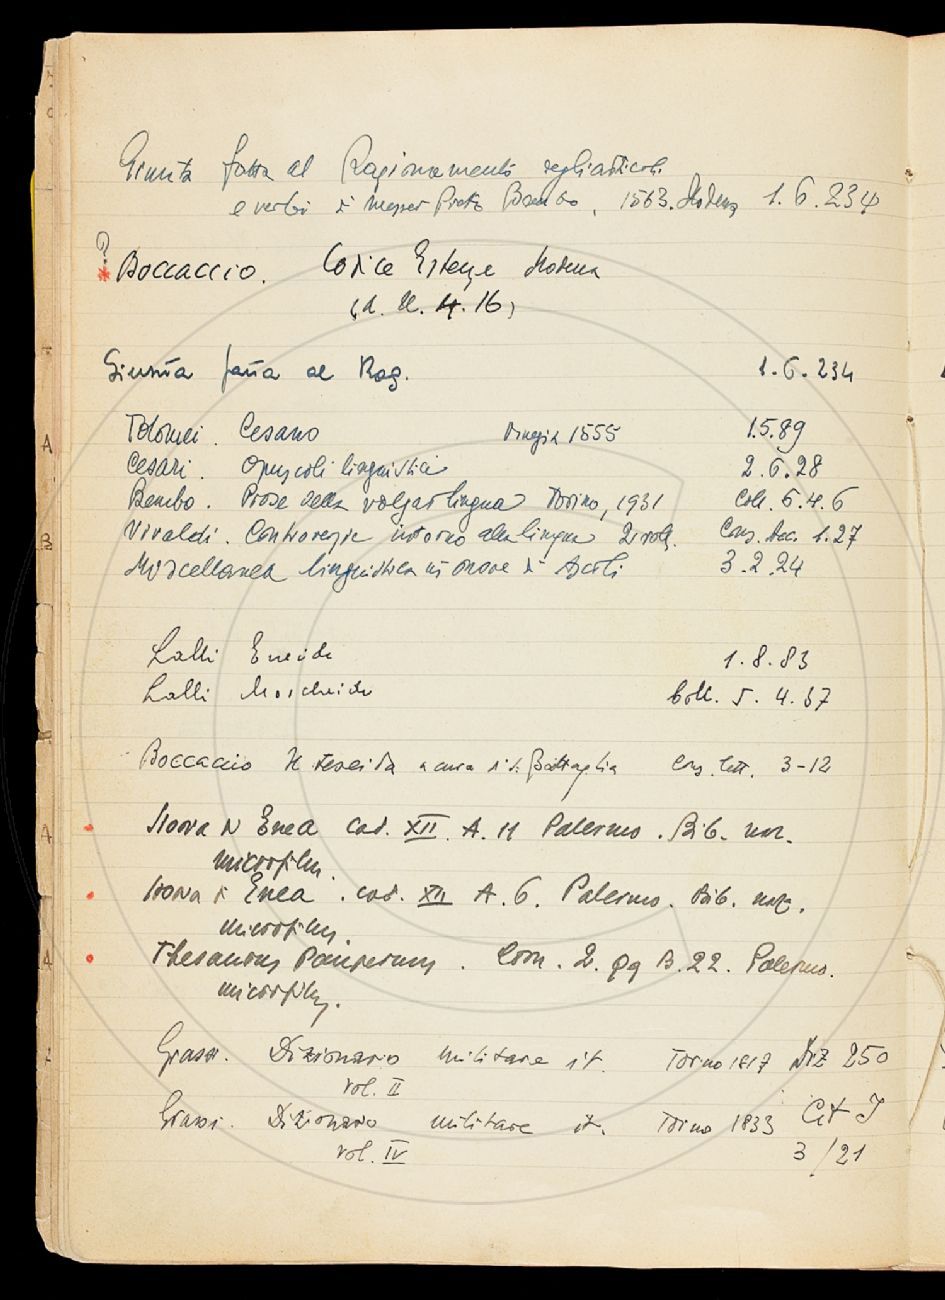 Giunta fatta al Ragionamento degli articoli
e verbi di messer Pietro Bembo, 1563. Modena 1.6.234
?
* Boccaccio. Codice Estense Modena
Giunta fatta al Rag. 1.6.234
Tolomei. Cesano 1555 1.5.89
Cesari. Opuscoli linguistici 2.6.28
Bembo. Prose della volgar lingua Torino, 1931 Coll. 5.4.6
Vivaldi. Controversie intorno alla lingua 2 voll. 1.27
Miscellanea linguistica in onore di Ascoli 3.2.24
Lalli Eneide 1.8.83
Lalli Moscheide Coll. 5.4.37
Boccaccio Il Teseida a cura di S. Battaglia Cons. Lett. 3-12
Storia di Enea cod. XII A. 11 Palermo. Bib. naz.
microfilm.
Storia di Enea. cod. XII A. 6. Palermo. Bib. naz.
microfilm.
Thesaurus Pauperum. Com. 2. Qq B. 22. Palermo.
microfilm.
Grassi. Dizionario militare it. Torino 1817 Diz 250
vol. II
Grassi. Dizionario militare it. Torino 1833 Cit I
vol. IV 3/21
A
B
A
A